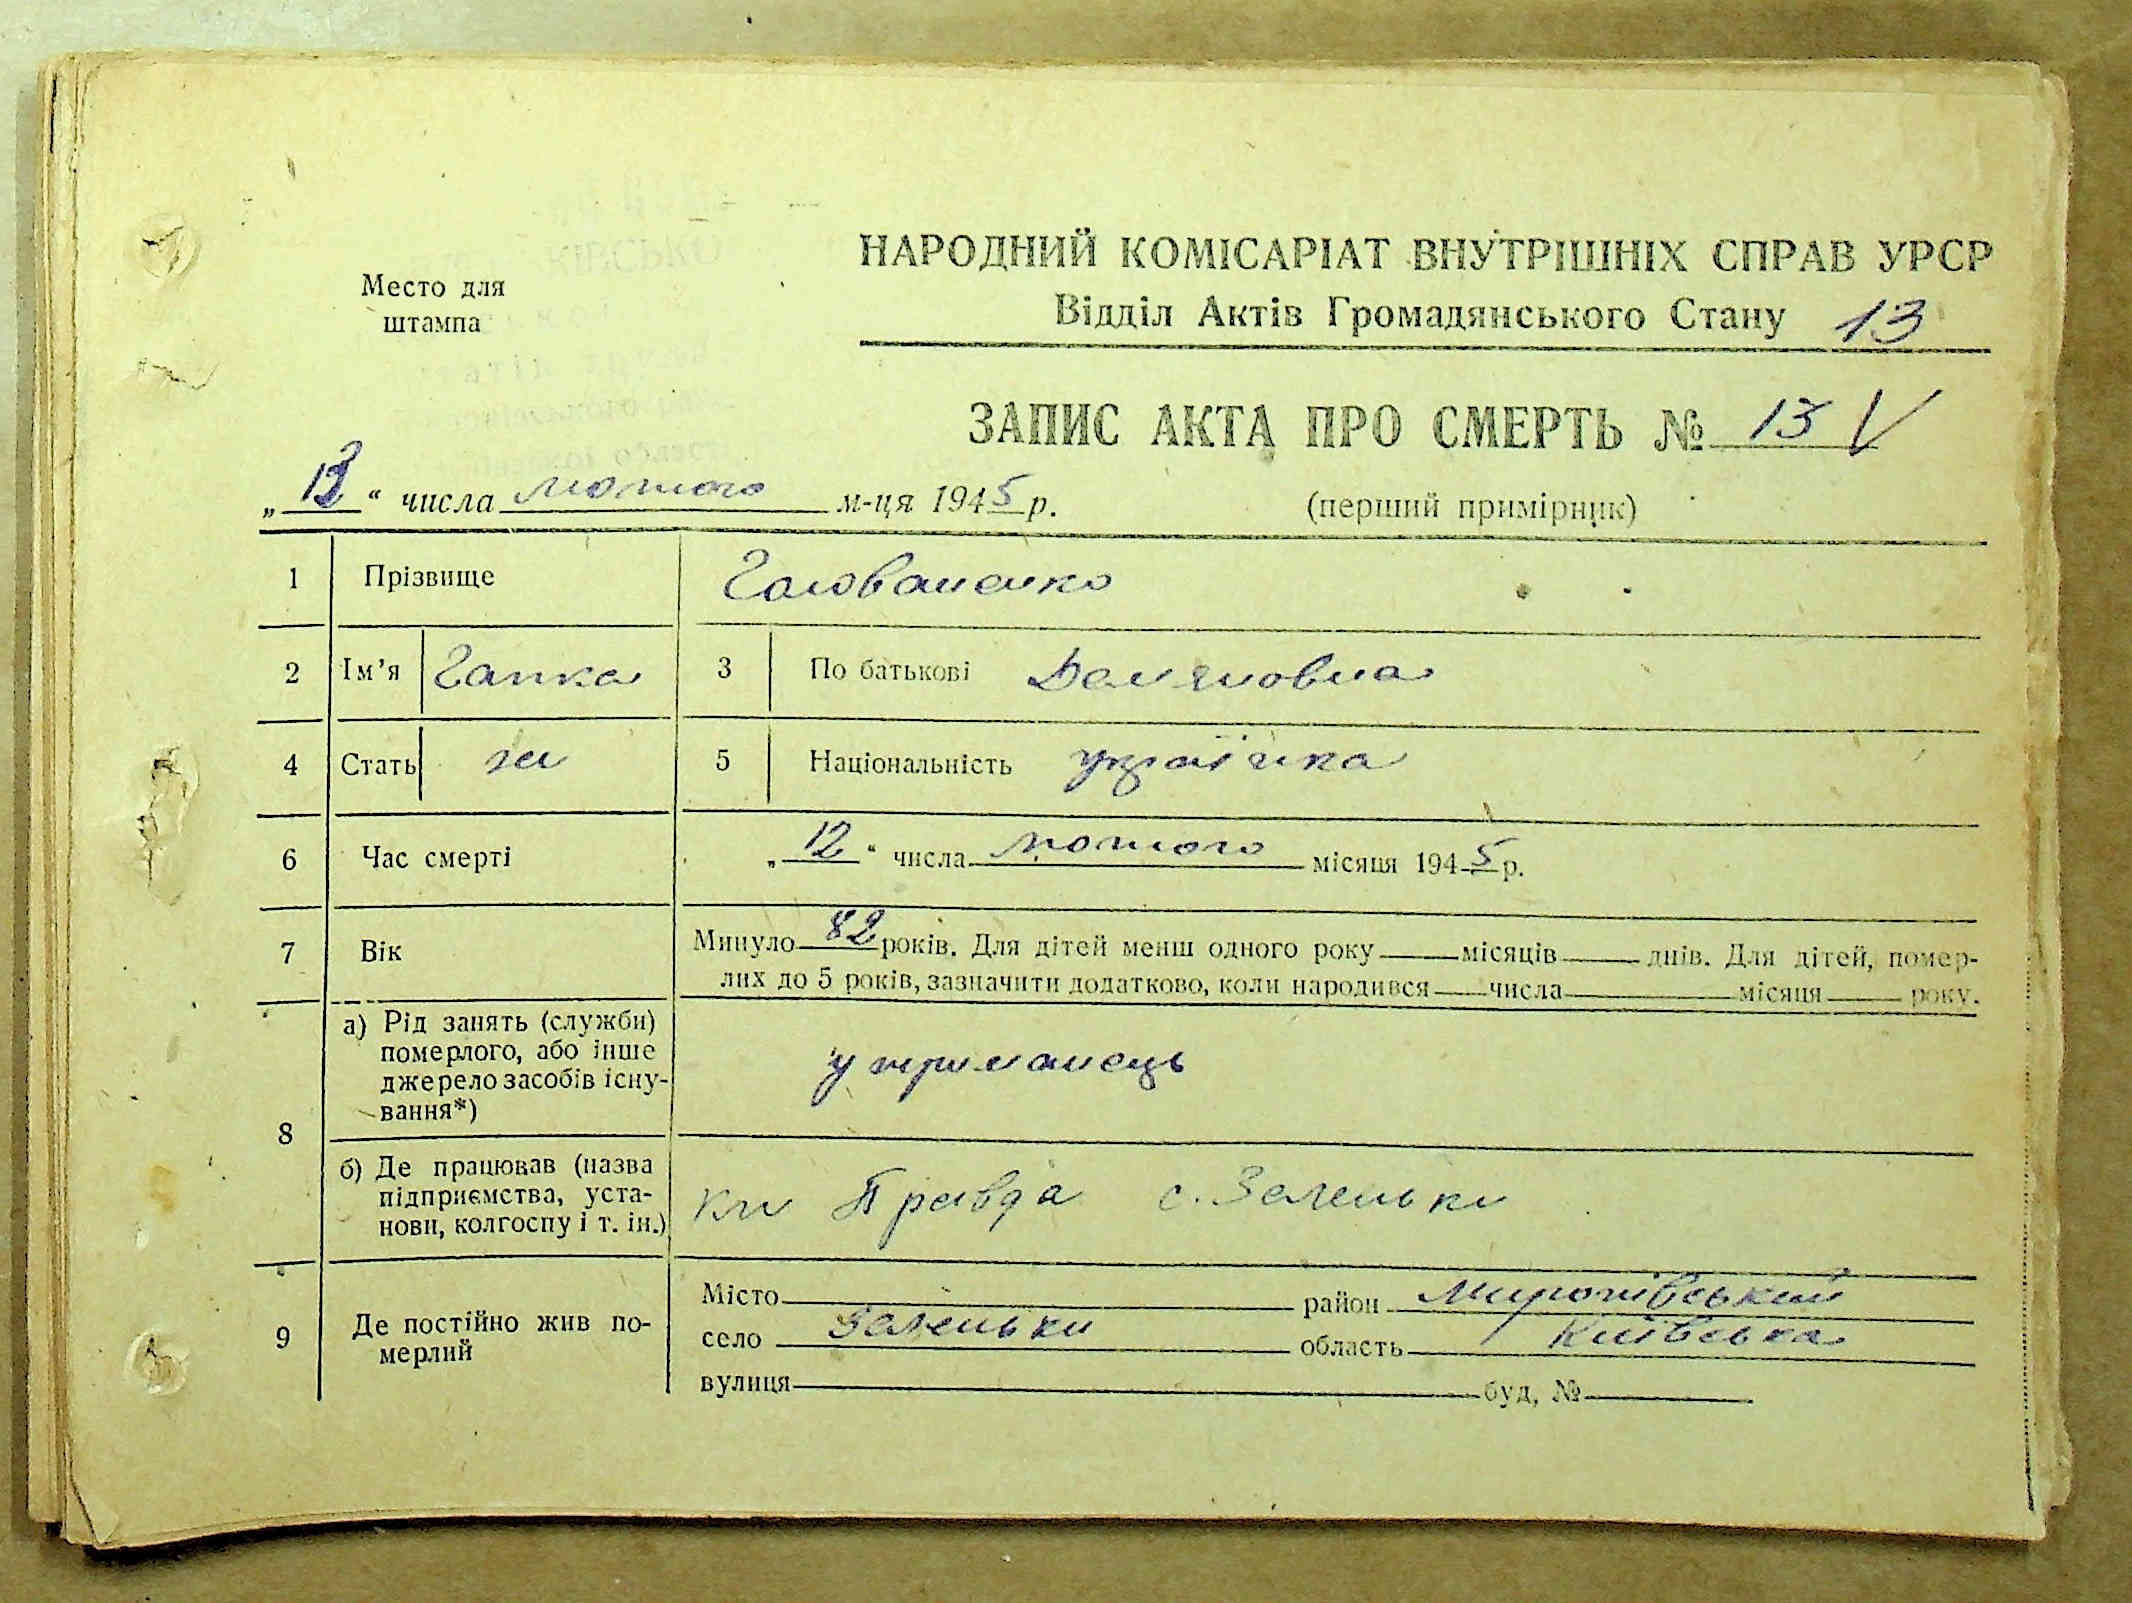 Место для
штампа
НАРОДНИЙ КОМІСАРІАТ ВНУТРІШНІХ СПРАВ УРСР
Відділ Актів Громадянського Стану 13
ЗАПИС АКТА ПРО СМЕРТЬ № 13 V
„13“ числа лютого м-ця 1945 р.
(перший примірник)
1 Прізвище Голованенко
2 Ім’я Гапка 3 По батькові Дем'яновна
4 Стать ж 5 Національність українка
6 Час смерті „12“ числа лютого місяця 1945 р.
7 Вік Минуло 82 років. Для дітей менш одного року місяців днів. Для дітей, помер-
лих до 5 років, зазначити додатково, коли народився числа місяця року.
8 а) Рід занять (служби)
померлого, або інше
джерело засобів існу-
вання*)
утриманець
б) Де працював (назва
підприємства, уста-
нови, колгоспу і т. ін.)
Правда с. Зеленьки
9 Де постійно жив по-
мерлий
Місто район Миронівський
село Зеленьки область Київська
вулиця буд, №